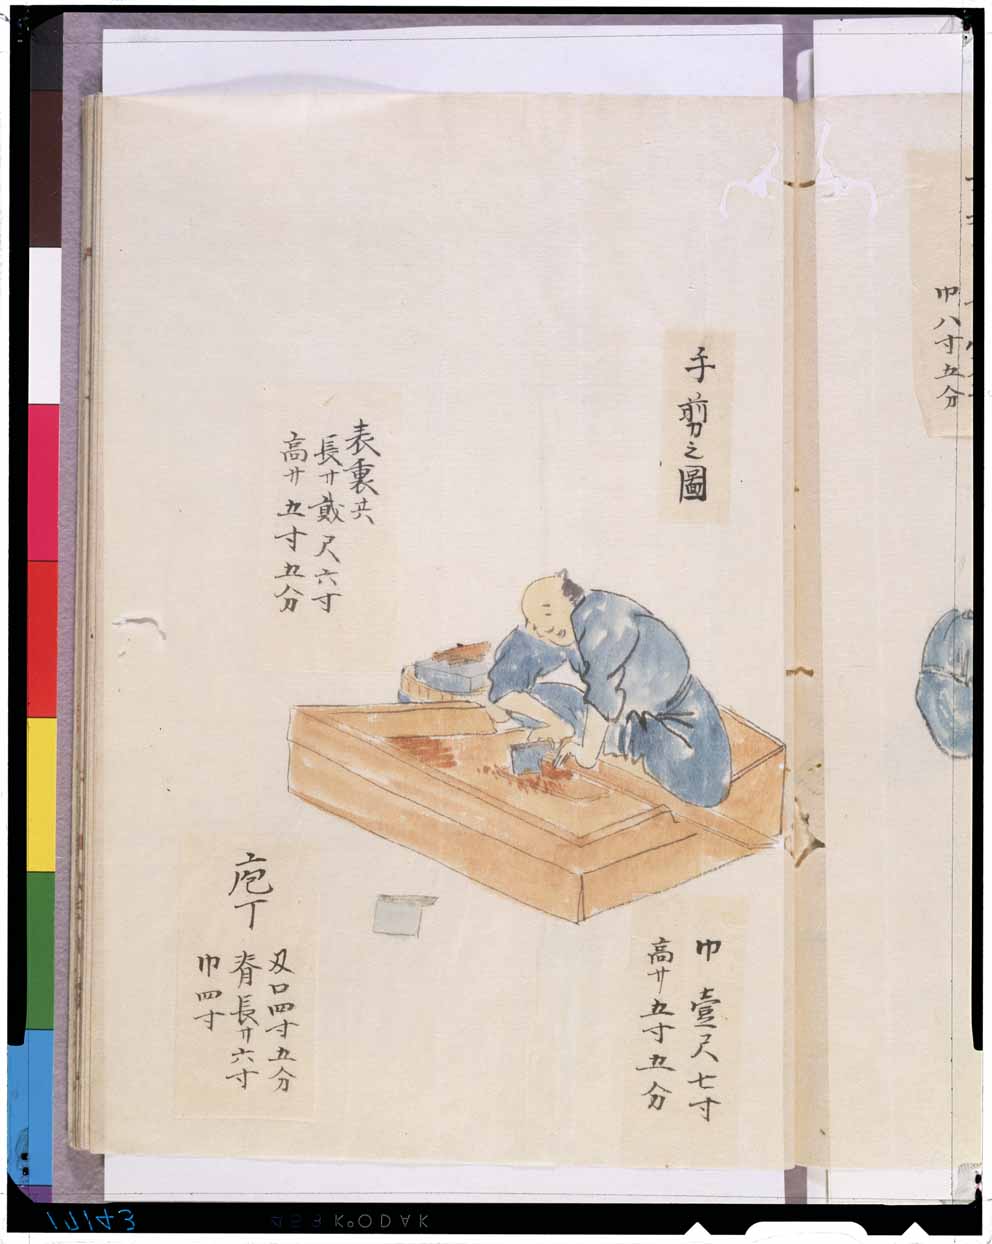 巾八寸五分
手剪之圖
表裏共
長サ貮尺六寸
高サ五寸五分
巾壹尺七寸
高サ五寸五分
庖丁
刄口四寸五分
脊長サ六寸
巾四寸
KODAK